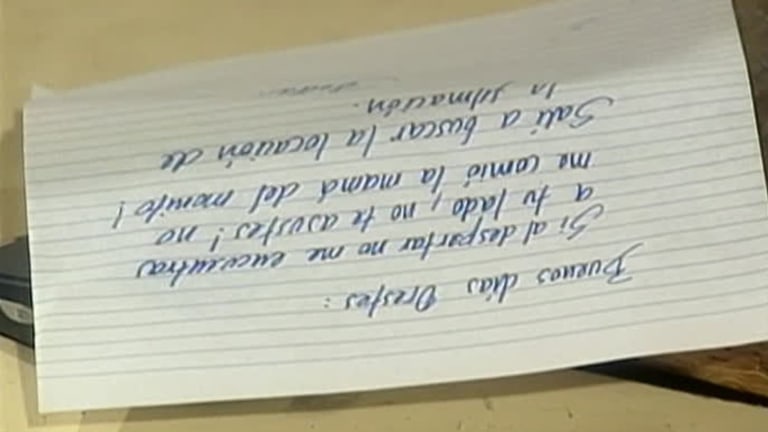 Buenos días Orestes:
Si al despertar no me encuentras
a tu lado, no te asustes! no
me comió la mamá del monito!
Salí a buscar la locación de
la filmación.